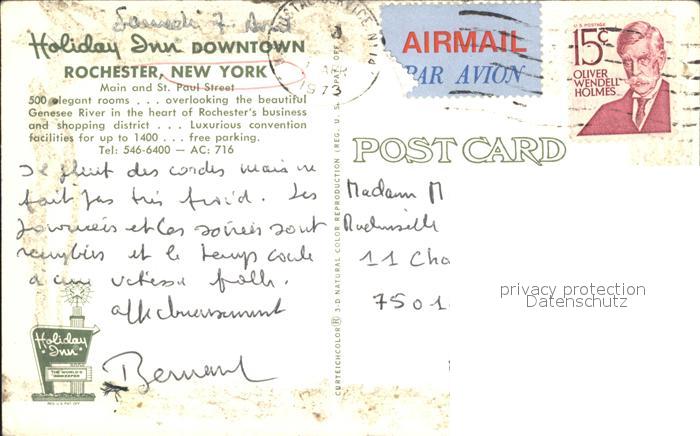 Samedi 7 Avril
Holiday Inn DOWNTOWN
ROCHESTER, NEW YORK
Main and St. Paul Street
500 elegant rooms . . . overlooking the beautiful
Genesee River in the heart of Rochester's business
and shopping district . . . Luxurious convention
facilities for up to 1400 . . . free parking.
Tel: 546-6400 — AC: 716
Il pleut des cordes mais ne
fait pas très froid. Les
journées et les soirées sont
remplies et le temps coule
à une vitesse folle.
affectueusement
Bernard
Holiday
Inn
THE WORLD'S
INNKEEPER
CURTEICHCOLOR® 3-D NATURAL COLOR REPRODUCTION (REG. U. S. PAT. OFF.
1973
AIRMAIL
PAR AVION
U.S. POSTAGE
15¢
OLIVER
WENDELL
HOLMES
POST CARD
Madame M
11 Cha
7501
privacy protection
Datenschutz